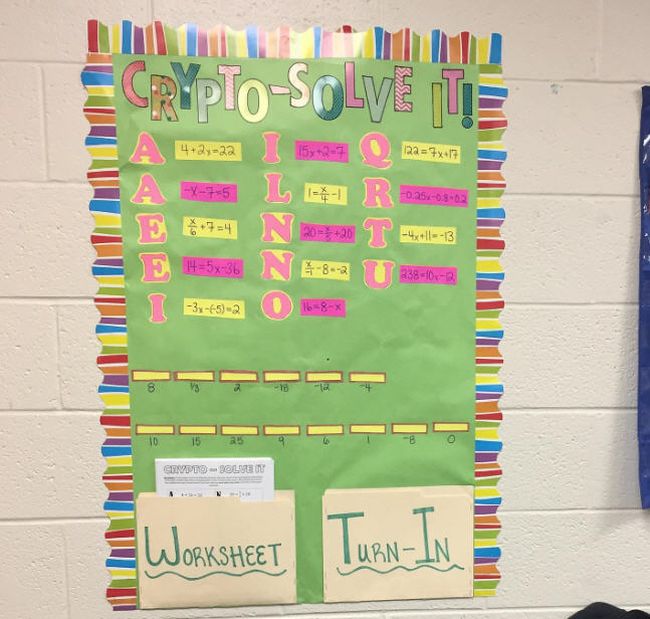 CRYPTO-SOLVE IT!
A 4+2x=22 I 15x+2=7 Q 122=7x+17
A -x-7=5 L 1=x/4-1 R -0.25x-0.8=0.2
E x/6+7=4 N 20=x/5+20 T -4x+11=-13
E 14=5x-36 N x/-1-8=-2 U 238=10x-12
I -3x-(-5)=2 O 16=8-x
8 13 2 -18 -12 -4
10 15 25 9 6 1 -8 0
CRYPTO - SOLVE IT
A N
WORKSHEET
TURN-IN